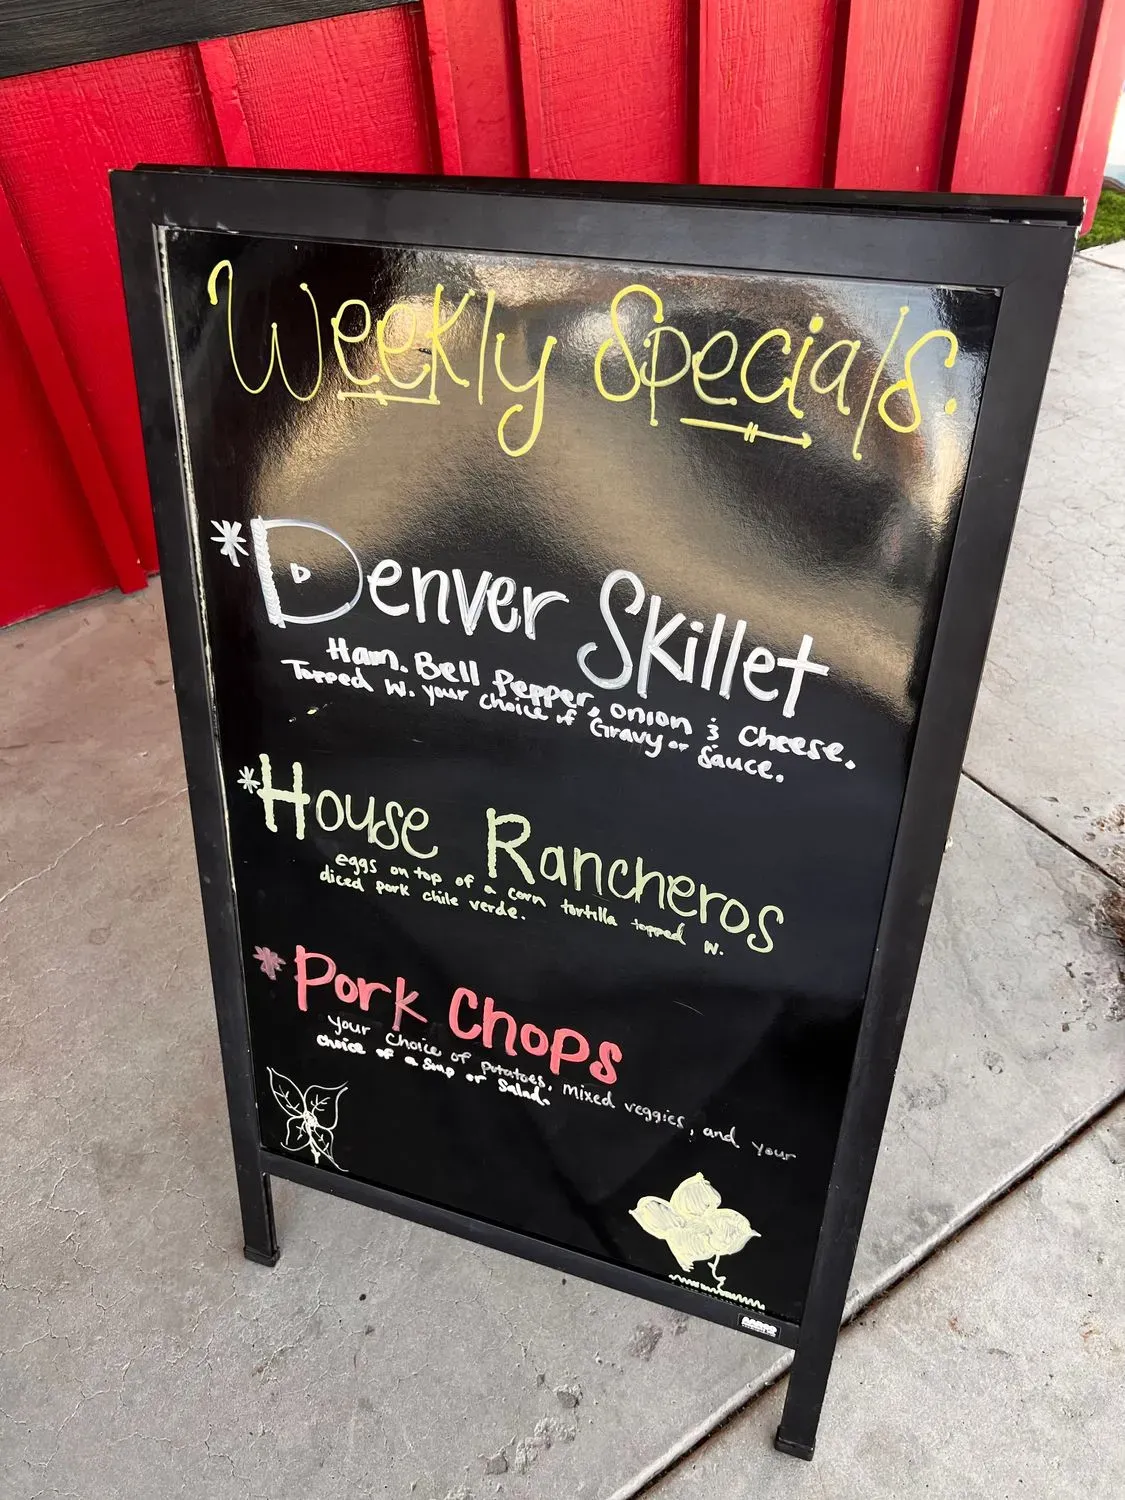 Weekly Specials:
*Denver Skillet
Ham. Bell Pepper, onion & Cheese.
Topped W. your choice of Gravy or Sauce.
*House Rancheros
eggs on top of a corn tortilla topped w.
diced pork chile verde.
*Pork Chops
your choice of potatoes, mixed veggies, and your
choice of a Soup or Salad.